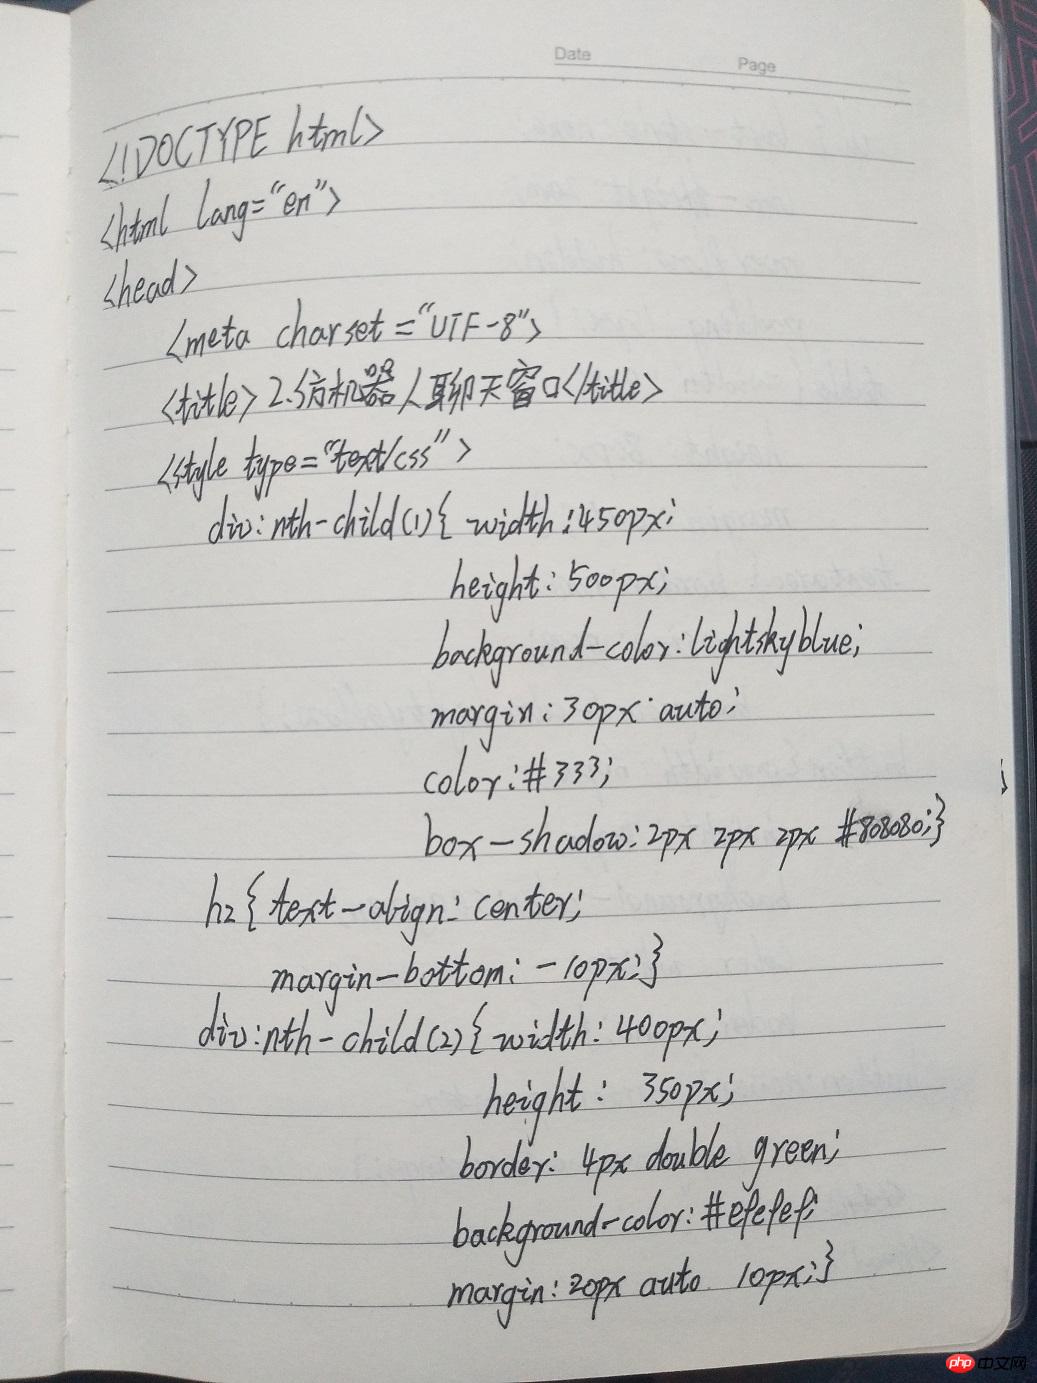 Date Page
<!DOCTYPE html>
<html lang="en">
<head>
<meta charset="UTF-8">
<title>2.仿机器人聊天窗口</title>
<style type="text/css">
div:nth-child(1){ width:450px;
height:500px;
background-color:lightskyblue;
margin:30px auto;
color:#333;
box-shadow:2px 2px 2px #808080;}
h2{text-align:center;
margin-bottom:-10px;}
div:nth-child(2){width:400px;
height: 350px;
border: 4px double green;
background-color:#efefef;
margin:20px auto 10px;}
php 中文网